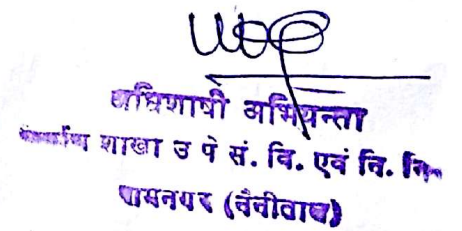 अधिशाषी अभियन्ता
शाखा उ पे सं. वि. एवं नि. नि
रामनगर (नैनीताल)